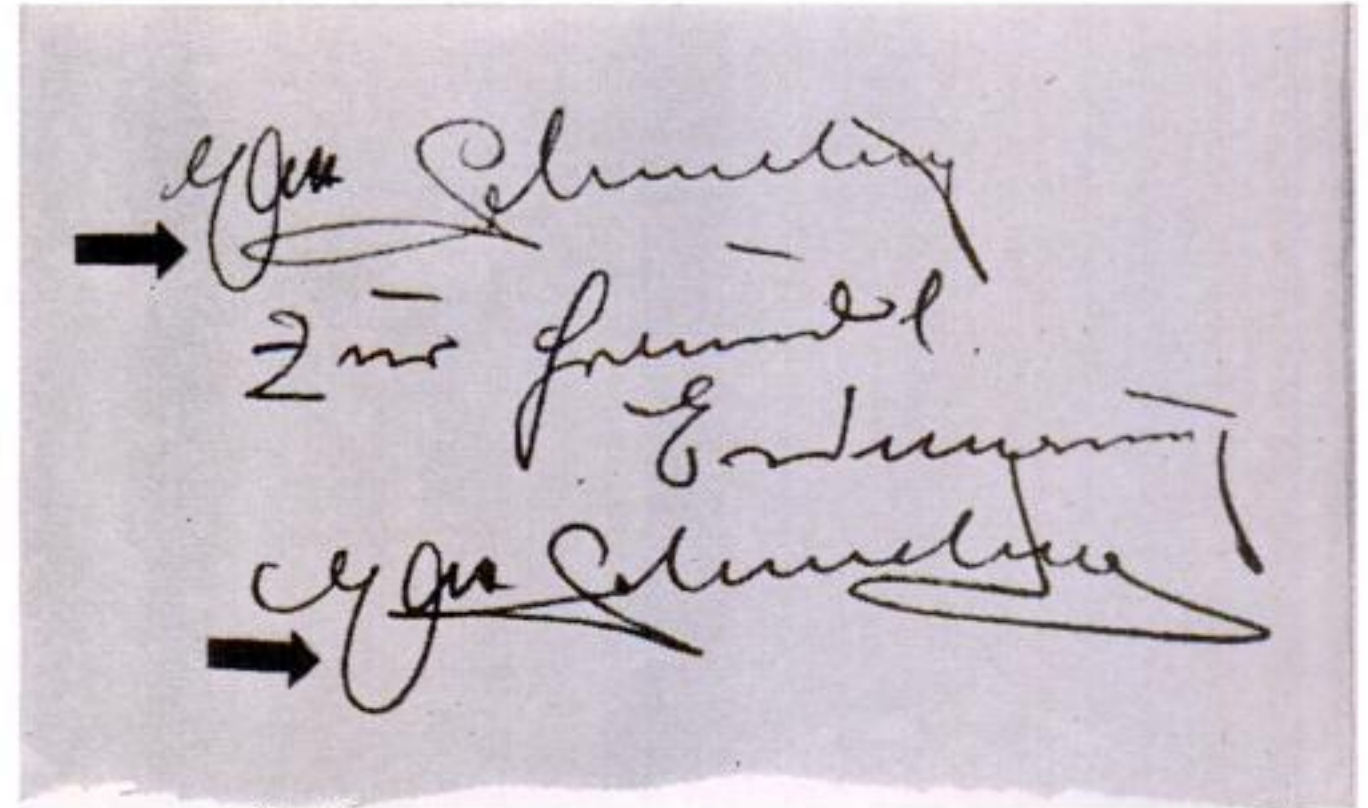 Max Schmeling
Zur freundl.
Erinnerung
Max Schmeling